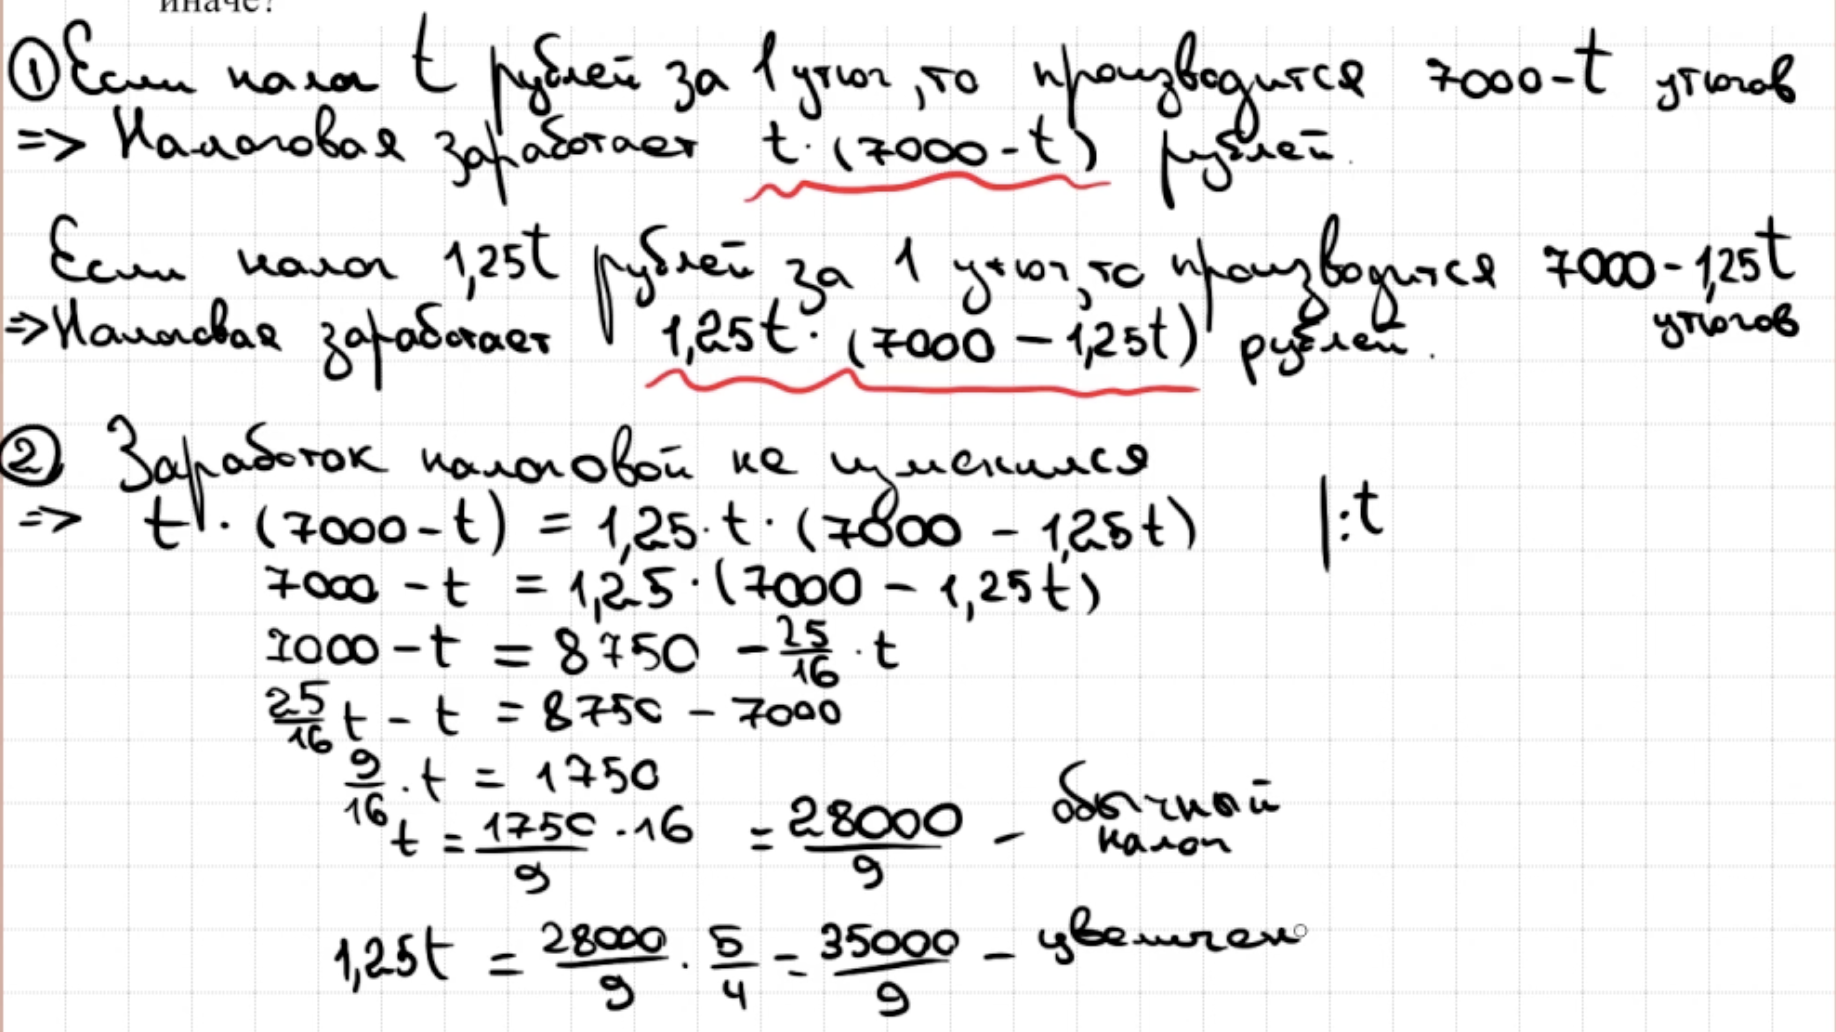 иначе?
① Если налог t рублей за 1 утюг, то производится 7000-t утюгов
=> Налоговая заработает t·(7000-t) рублей.
Если налог 1,25t рублей за 1 утюг, то производится 7000-1,25t утюгов
=> Налоговая заработает 1,25t·(7000-1,25t) рублей.
② Заработок налоговой не изменился
=> t·(7000-t) = 1,25·t·(7000-1,25t) |:t
7000-t = 1,25·(7000-1,25t)
7000-t = 8750 - 25/16·t
25/16 t - t = 8750 - 7000
9/16·t = 1750
t = 1750·16/9 = 28000/9 - обычный налог
1,25t = 28000/9 · 5/4 = 35000/9 - увеличен